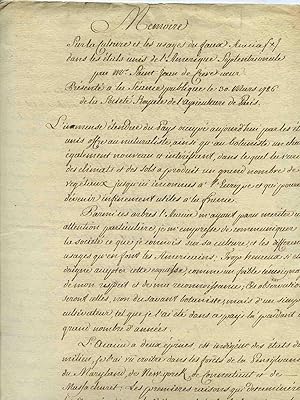 Memoire
Sur la culture et les usages du faux Acacia
dans les états unis de l'Amerique Septentrionale
par Mr. Saint Jean de Creve coeur
Présenté à la Seance publique le 30 Mars 1786
de la Societé Royale de l'Agriculture de Paris.
L'immense étendue du Pays occupée aujourd'hui par les états
unis offre au naturaliste, ainsi qu'au botaniste un
également nouveau et interessant, dans lequel la
des climats et des sols a produit un grand nombre de
vegetaux jusqu'ici inconnus à l'Europe et qui
devenir infiniment utiles a la france.
Parmi ces arbres l'Acacia m'ayant paru meriter
attention particuliere, je m'empresse de communiquer
la societé ce que je connois sur sa culture, et les differens
usages qu'en font les Americains. Trop heureux si
daigne accepter cette esquisse, comme un foible temoignage
de mon respect et de ma reconnoissance; Ces observations
seront celles, non du savant botaniste, mais d'un simple
cultivateur, tel que je l'ai été dans ce pays là pendant
grand nombre d'années.
L'Acacia à deux épines, est indigene des états du
milieu, je l'ai vu croitre dans les forêts de la Pensylvanie
du Maryland, de New-york, de Connecticut et de
Massachuset. Les premieres raisons qui